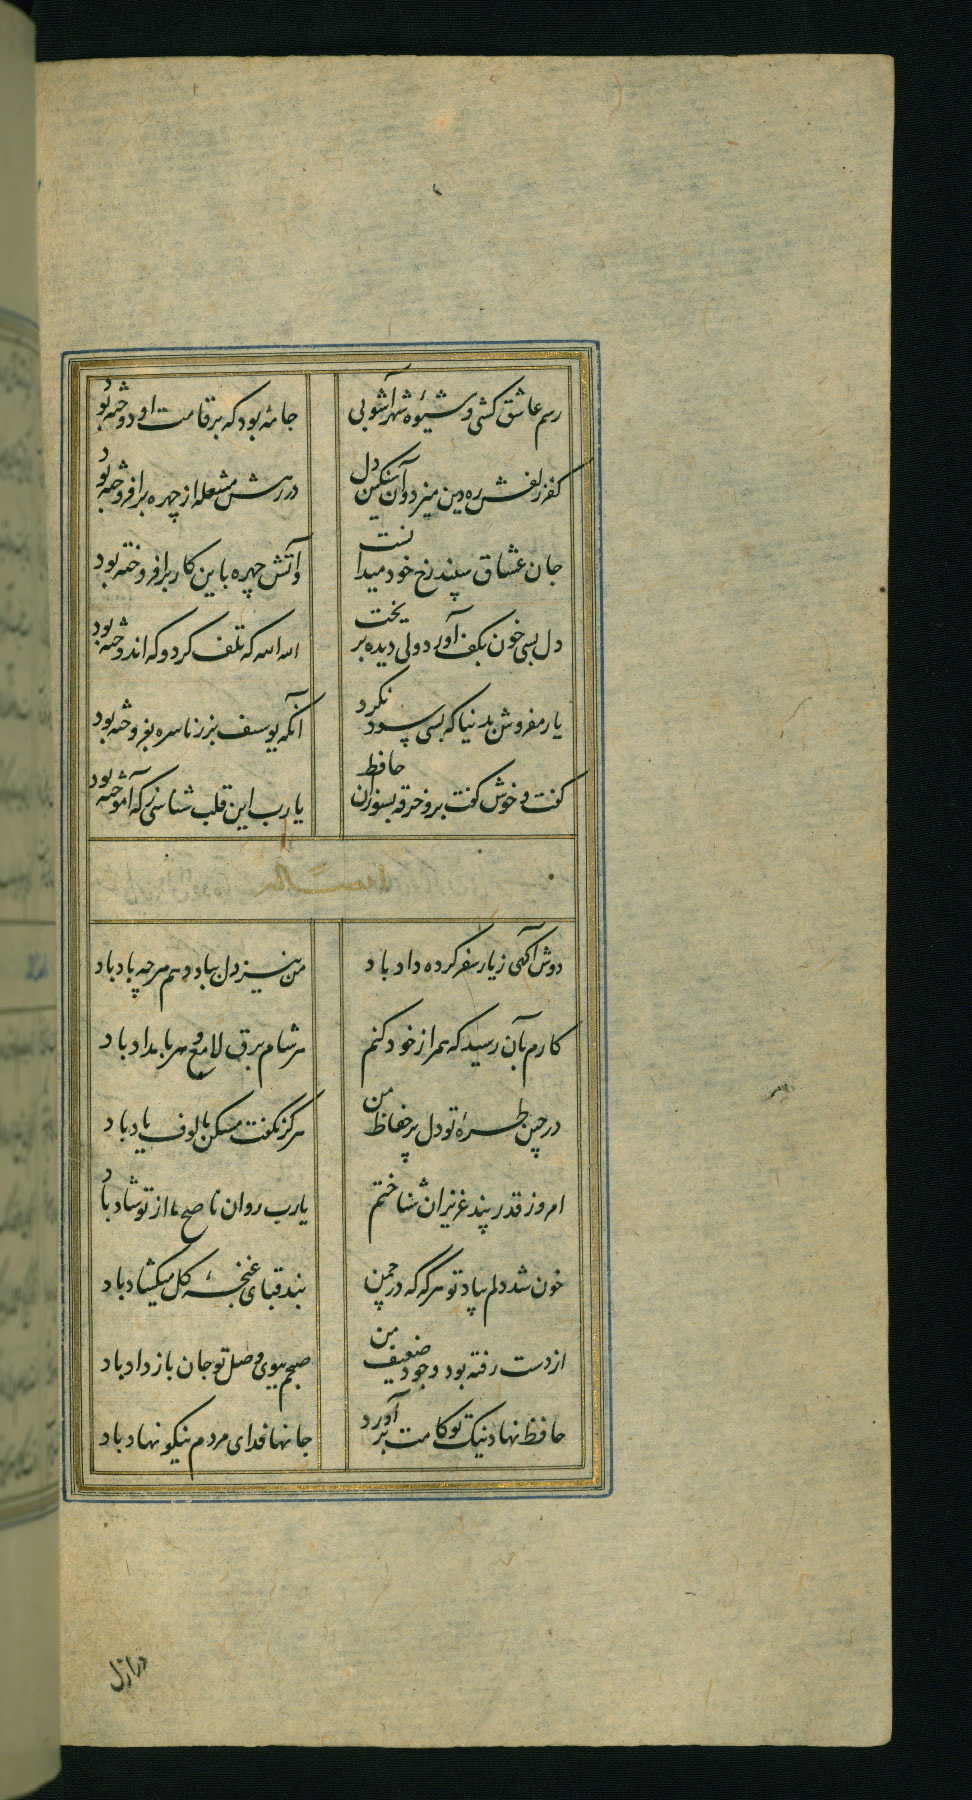 رسم عاشق کشی و شیوهٔ شهرآشوبی جامهٔ بود که بر قامت او دوخته بود
کفر زلفش ره دین میزد و آن سنکین دل در رهش مشعله از چهره برافروخته بود
جان عشاق سپند رخ خود میدانست و آتش چهره باین کار برافروخته بود
دل بسی خون بکف آورد ولی دیده بریخت الله الله که تلف کرد و که اندوخته بود
یار مفروش بدنیا که بسی سود نکرد آنکه یوسف بزر ناسره بفروخته بود
کفت و خوش کفت برو خرقه بسوزان حافظ یا رب این قلب شناسی ز که آموخته بود
دوش آکهی ز یار سفر کرده داد باد من نیز دل بباد دهم هرچه باد باد
کارم بآن رسید که همراز خود کنم هر شام برق لامع و هر بامداد باد
در چین طرهٔ تو دل بیحفاظ من هرکز نکفت مسکن مالوف یاد باد
امروز قدر پند عزیزان شناختم یا رب روان ناصح ما از تو شاد باد
خون شد دلم بیاد تو هرکه که در چمن بند قبای غنچهٔ کل میکشاد باد
از دست رفته بود وجود ضعیف من صبحم ببوی وصل تو جان باز داد باد
حافظ نهاد نیک تو کامت برآورد جانها فدای مردم نیکو نهاد باد
در ازل